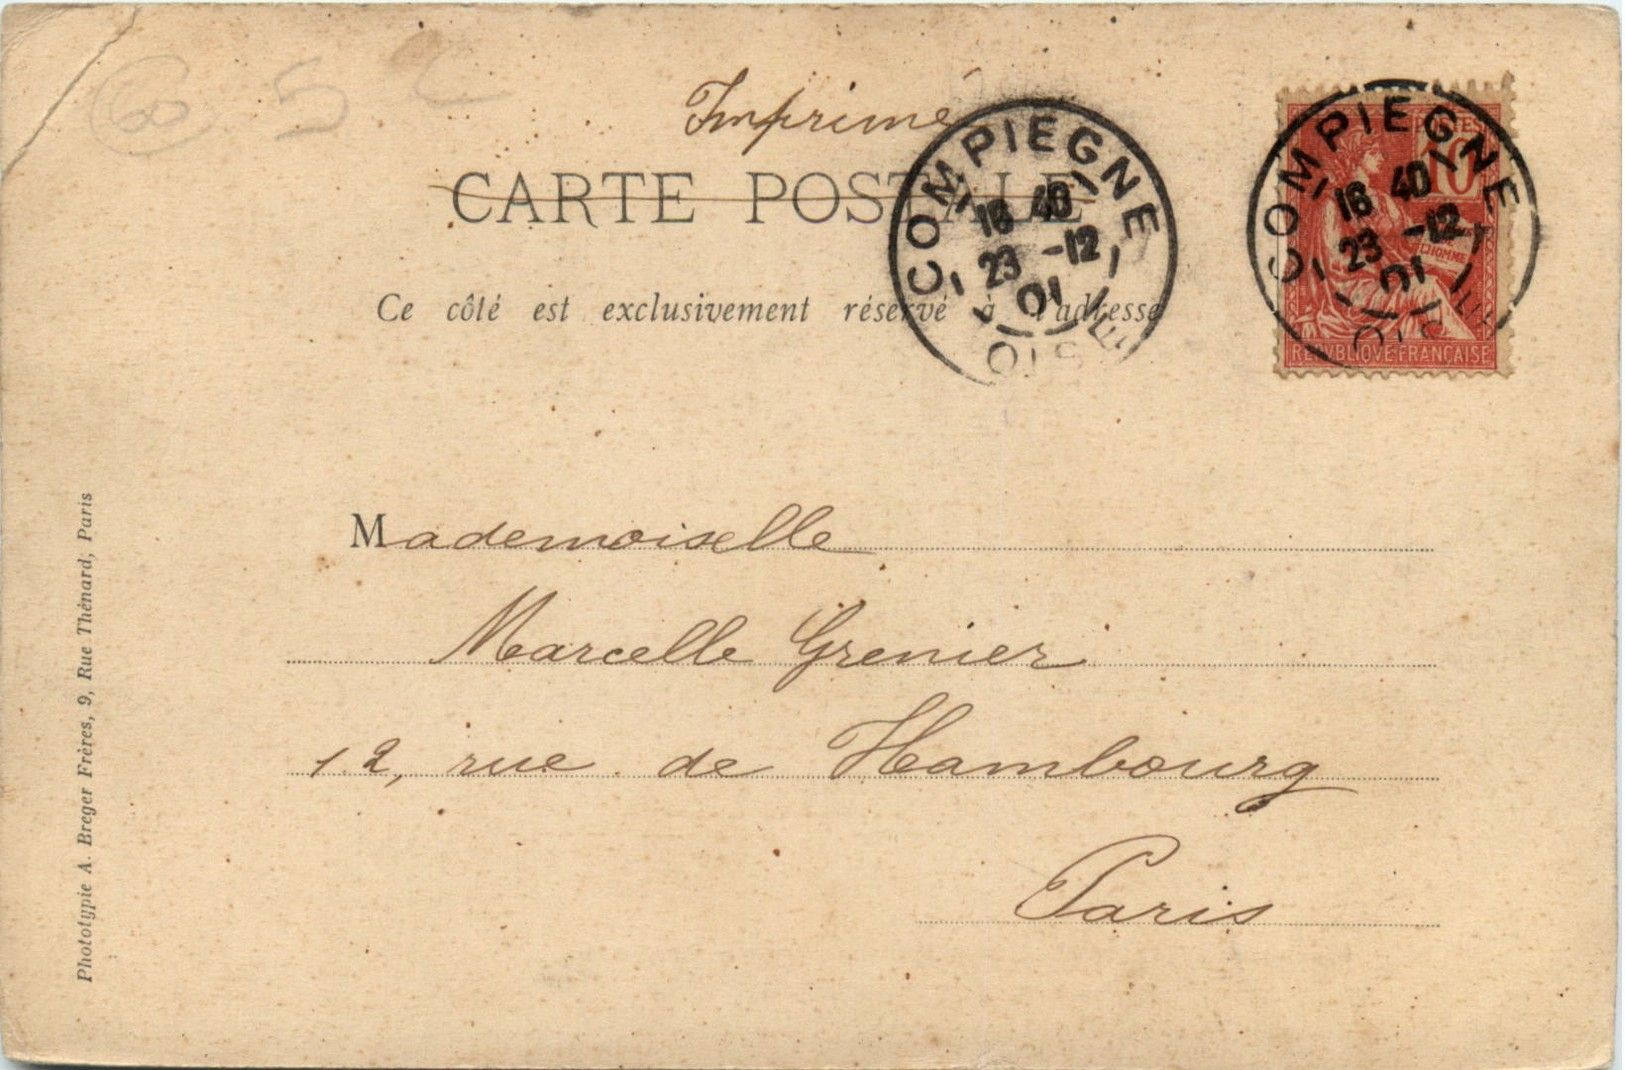 60 5
Imprimé
CARTE POSTALE
Ce côté est exclusivement réservé à l'adresse
COMPIEGNE
16 40
23 -12
01
OISE
POSTES
10
COMPIEGNE
16 40
23 -12
01
OISE
L'HOMME
REPVBLIQVE FRANÇAISE
Mademoiselle
Marcelle Grenier
12, rue de Hambourg
Paris
Phototypie A. Breger Frères, 9, Rue Thénard, Paris